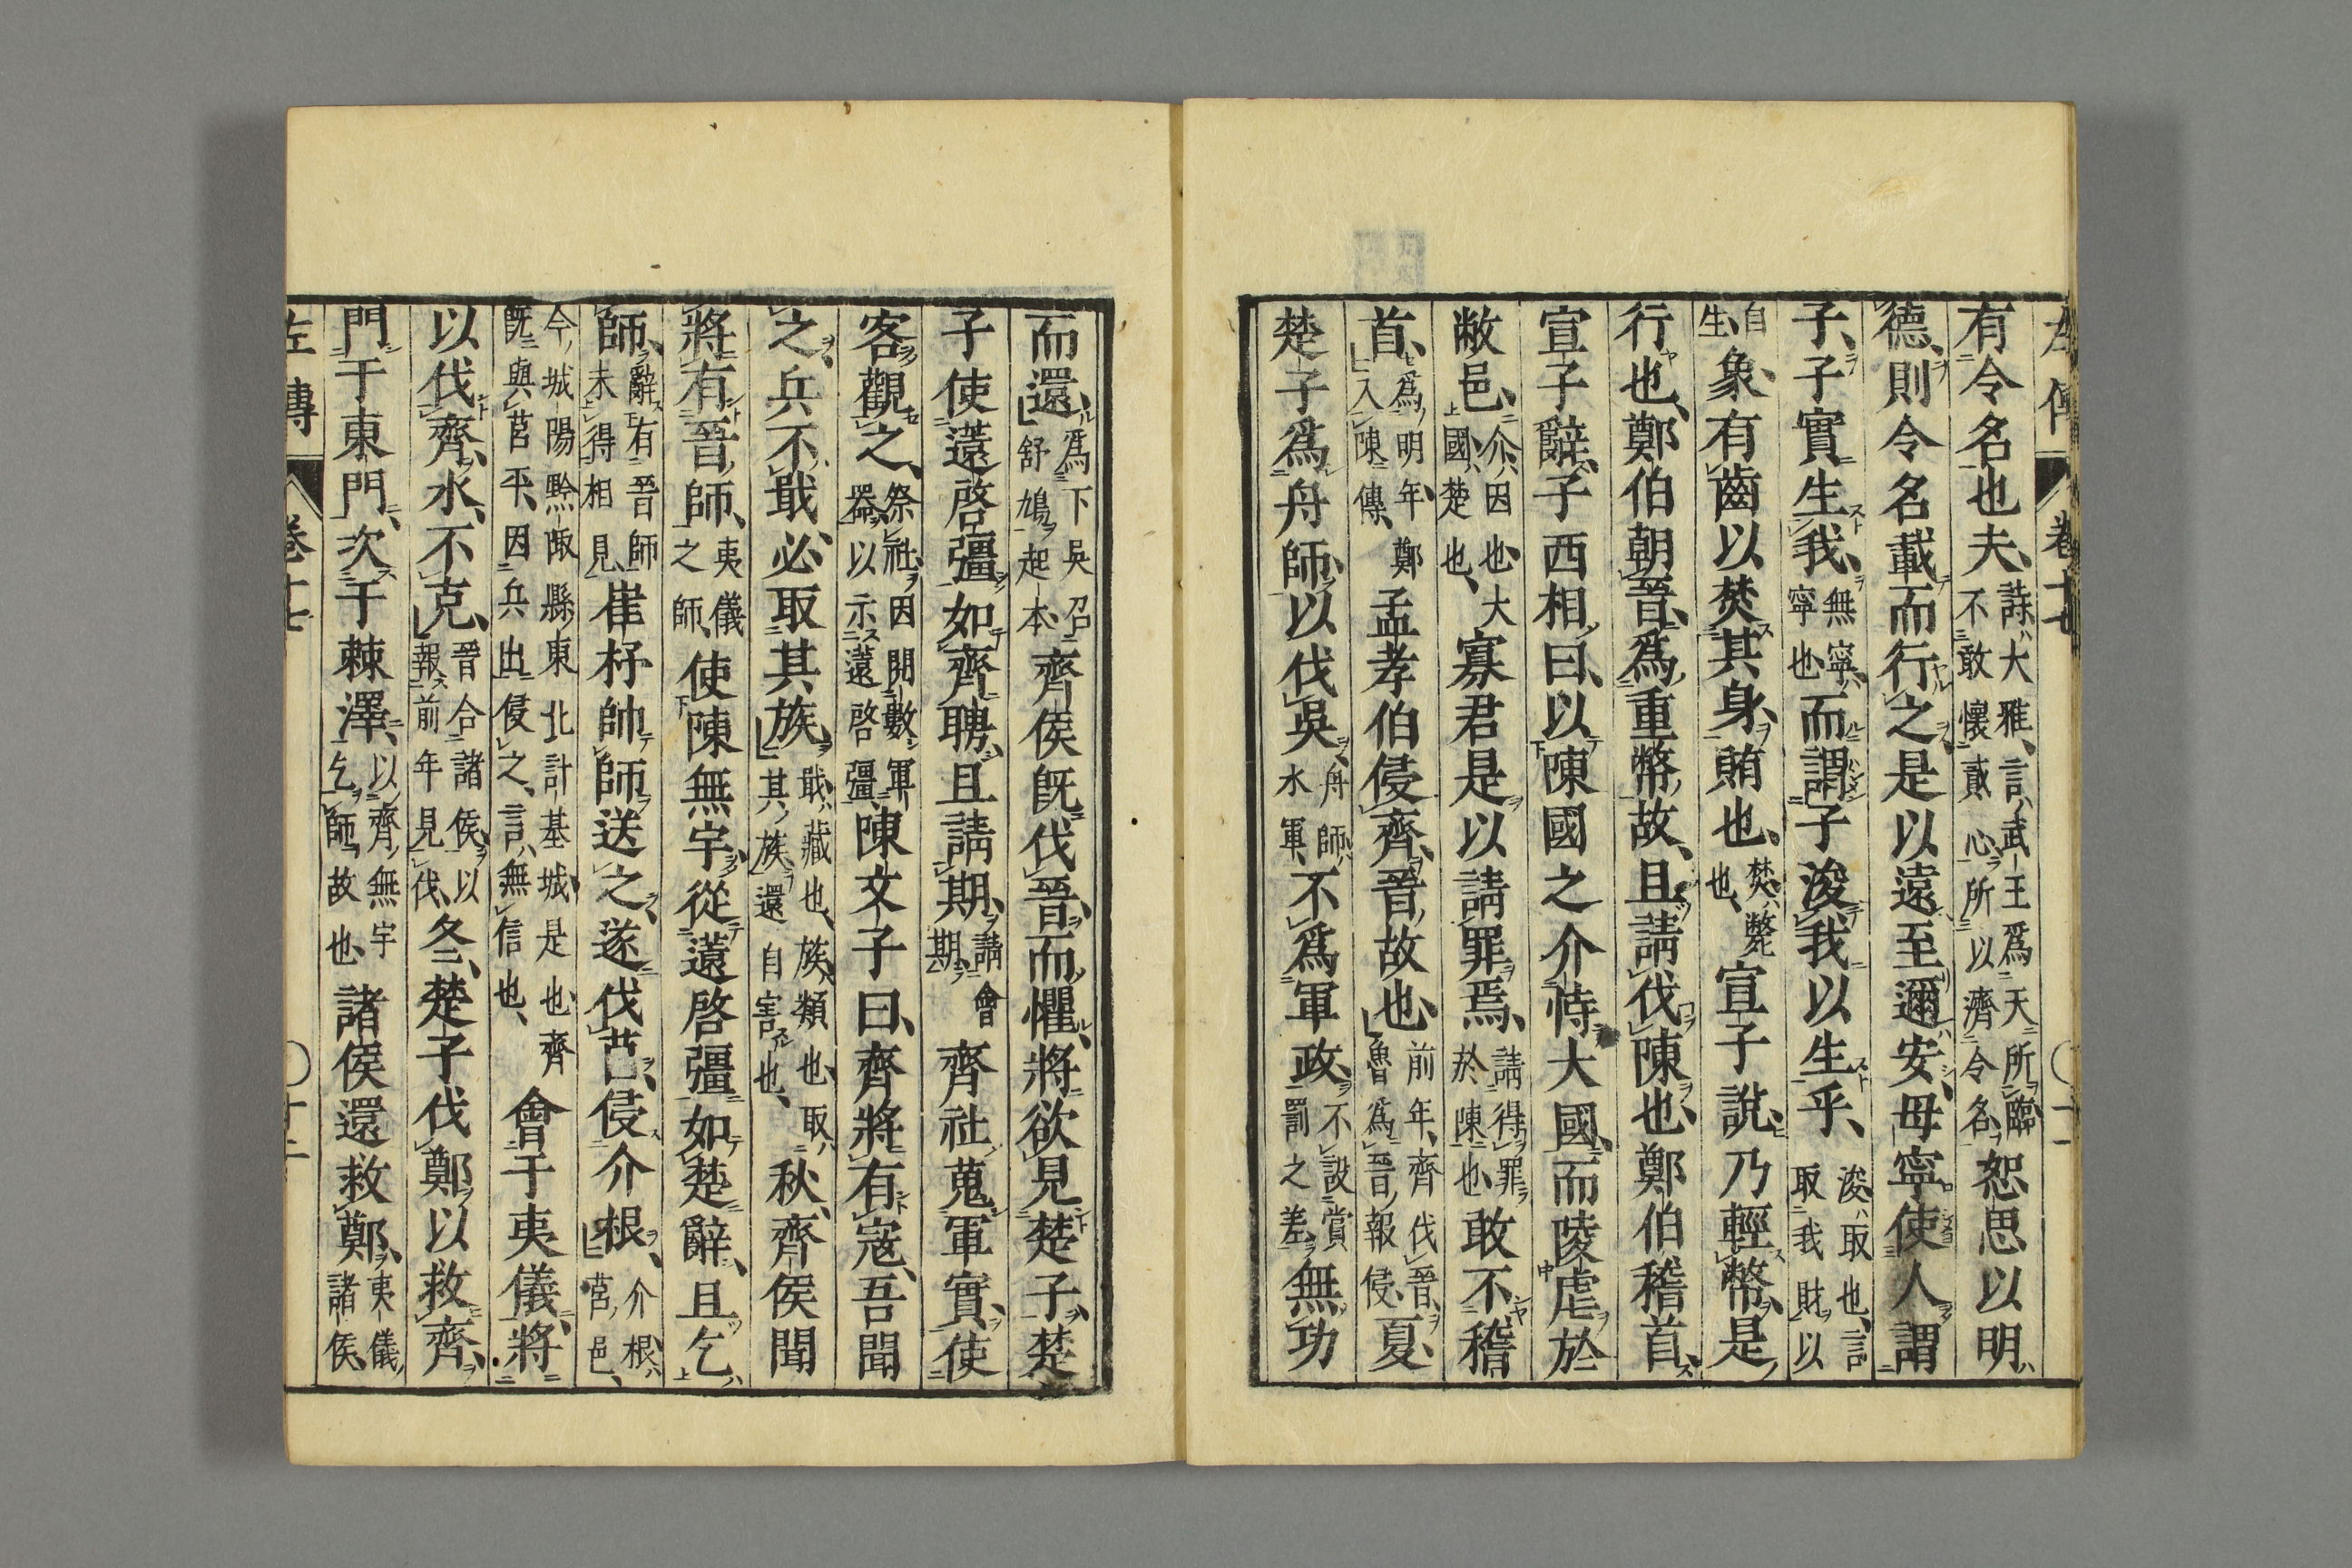 左傳 卷十七 〇十一
有令名也夫、詩大雅、言武王爲天所臨、不敢懷貳心、所以濟令名、恕思以明
德、則令名載而行之、是以遠至邇安、毋寧使人謂
子、子實生我、無寧、寧也、而謂子浚我以生乎、浚、取也、言取我財以
自生、象有齒以焚其身、賄也、焚、斃也、宣子説、乃輕幣、是
行也、鄭伯朝晉、爲重幣故、且請伐陳也、鄭伯稽首、
宣子辭、子西相曰、以陳國之介恃大國、而陵虐於
敝邑、介、因也、大國、楚也、寡君是以請罪焉、請得罪於陳也、敢不稽
首、爲明年鄭入陳傳、孟孝伯侵齊、晉故也、前年、齊伐晉、魯爲晉報侵、夏、
楚子爲舟師以伐吳、舟師、水軍、不爲軍政、不設賞罰之差、無功
而還、爲下吳召舒鳩起本、齊侯既伐晉而懼、將欲見楚子、楚
子使薳啓彊如齊聘、且請期、請會期、齊社蒐軍實、使
客觀之、祭社、因閲數軍器、以示薳啓彊、陳文子曰、齊將有寇、吾聞
之、兵不戢、必取其族、戢、藏也、族、類也、取其族、還自害也、秋、齊侯聞
將有晉師、夷儀之師、使陳無宇從薳啓彊如楚辭、且乞
師、辭有晉師未得相見、崔杼帥師送之、遂伐莒、侵介根、介根、莒邑、
今城陽黔陬縣東北計基城是也、齊既與莒平、因兵出侵之、言無信也、會于夷儀、將
以伐齊、水、不克、晉合諸侯、以報前年見伐、冬、楚子伐鄭以救齊、
門于東門、次于棘澤、以齊無宇乞師故也、諸侯還救鄭、夷儀諸侯、
左傳 卷十七 〇十二